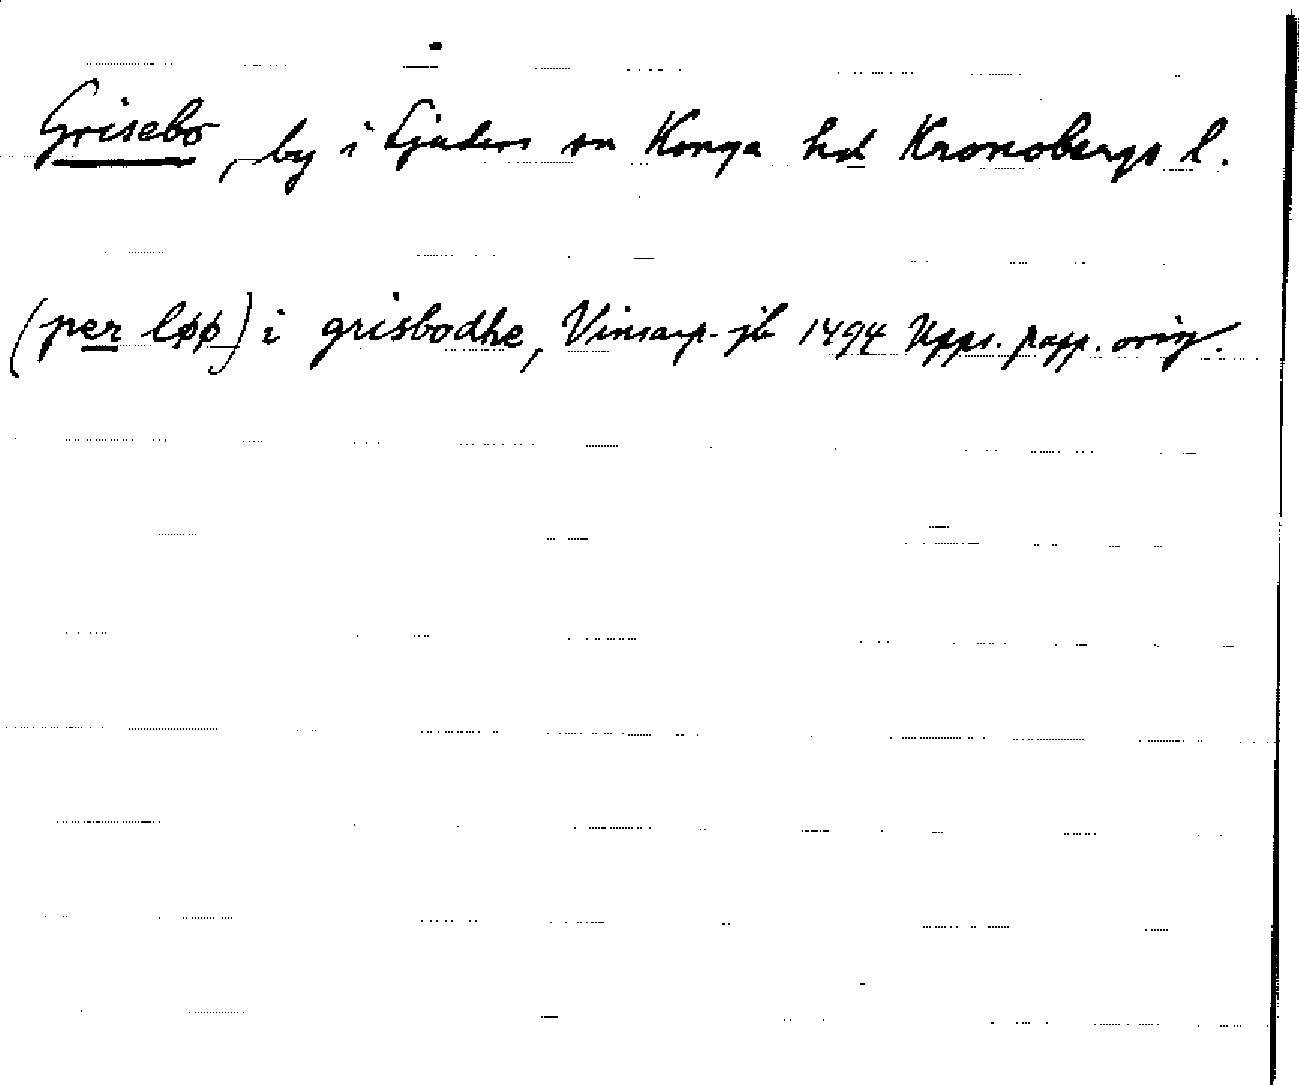 Grisebo, by i Ljuders sn Konga hd Kronobergs l.
(per løø) i grisbodhe, Vinsarp. jb 1494 Upps. papp. orig.